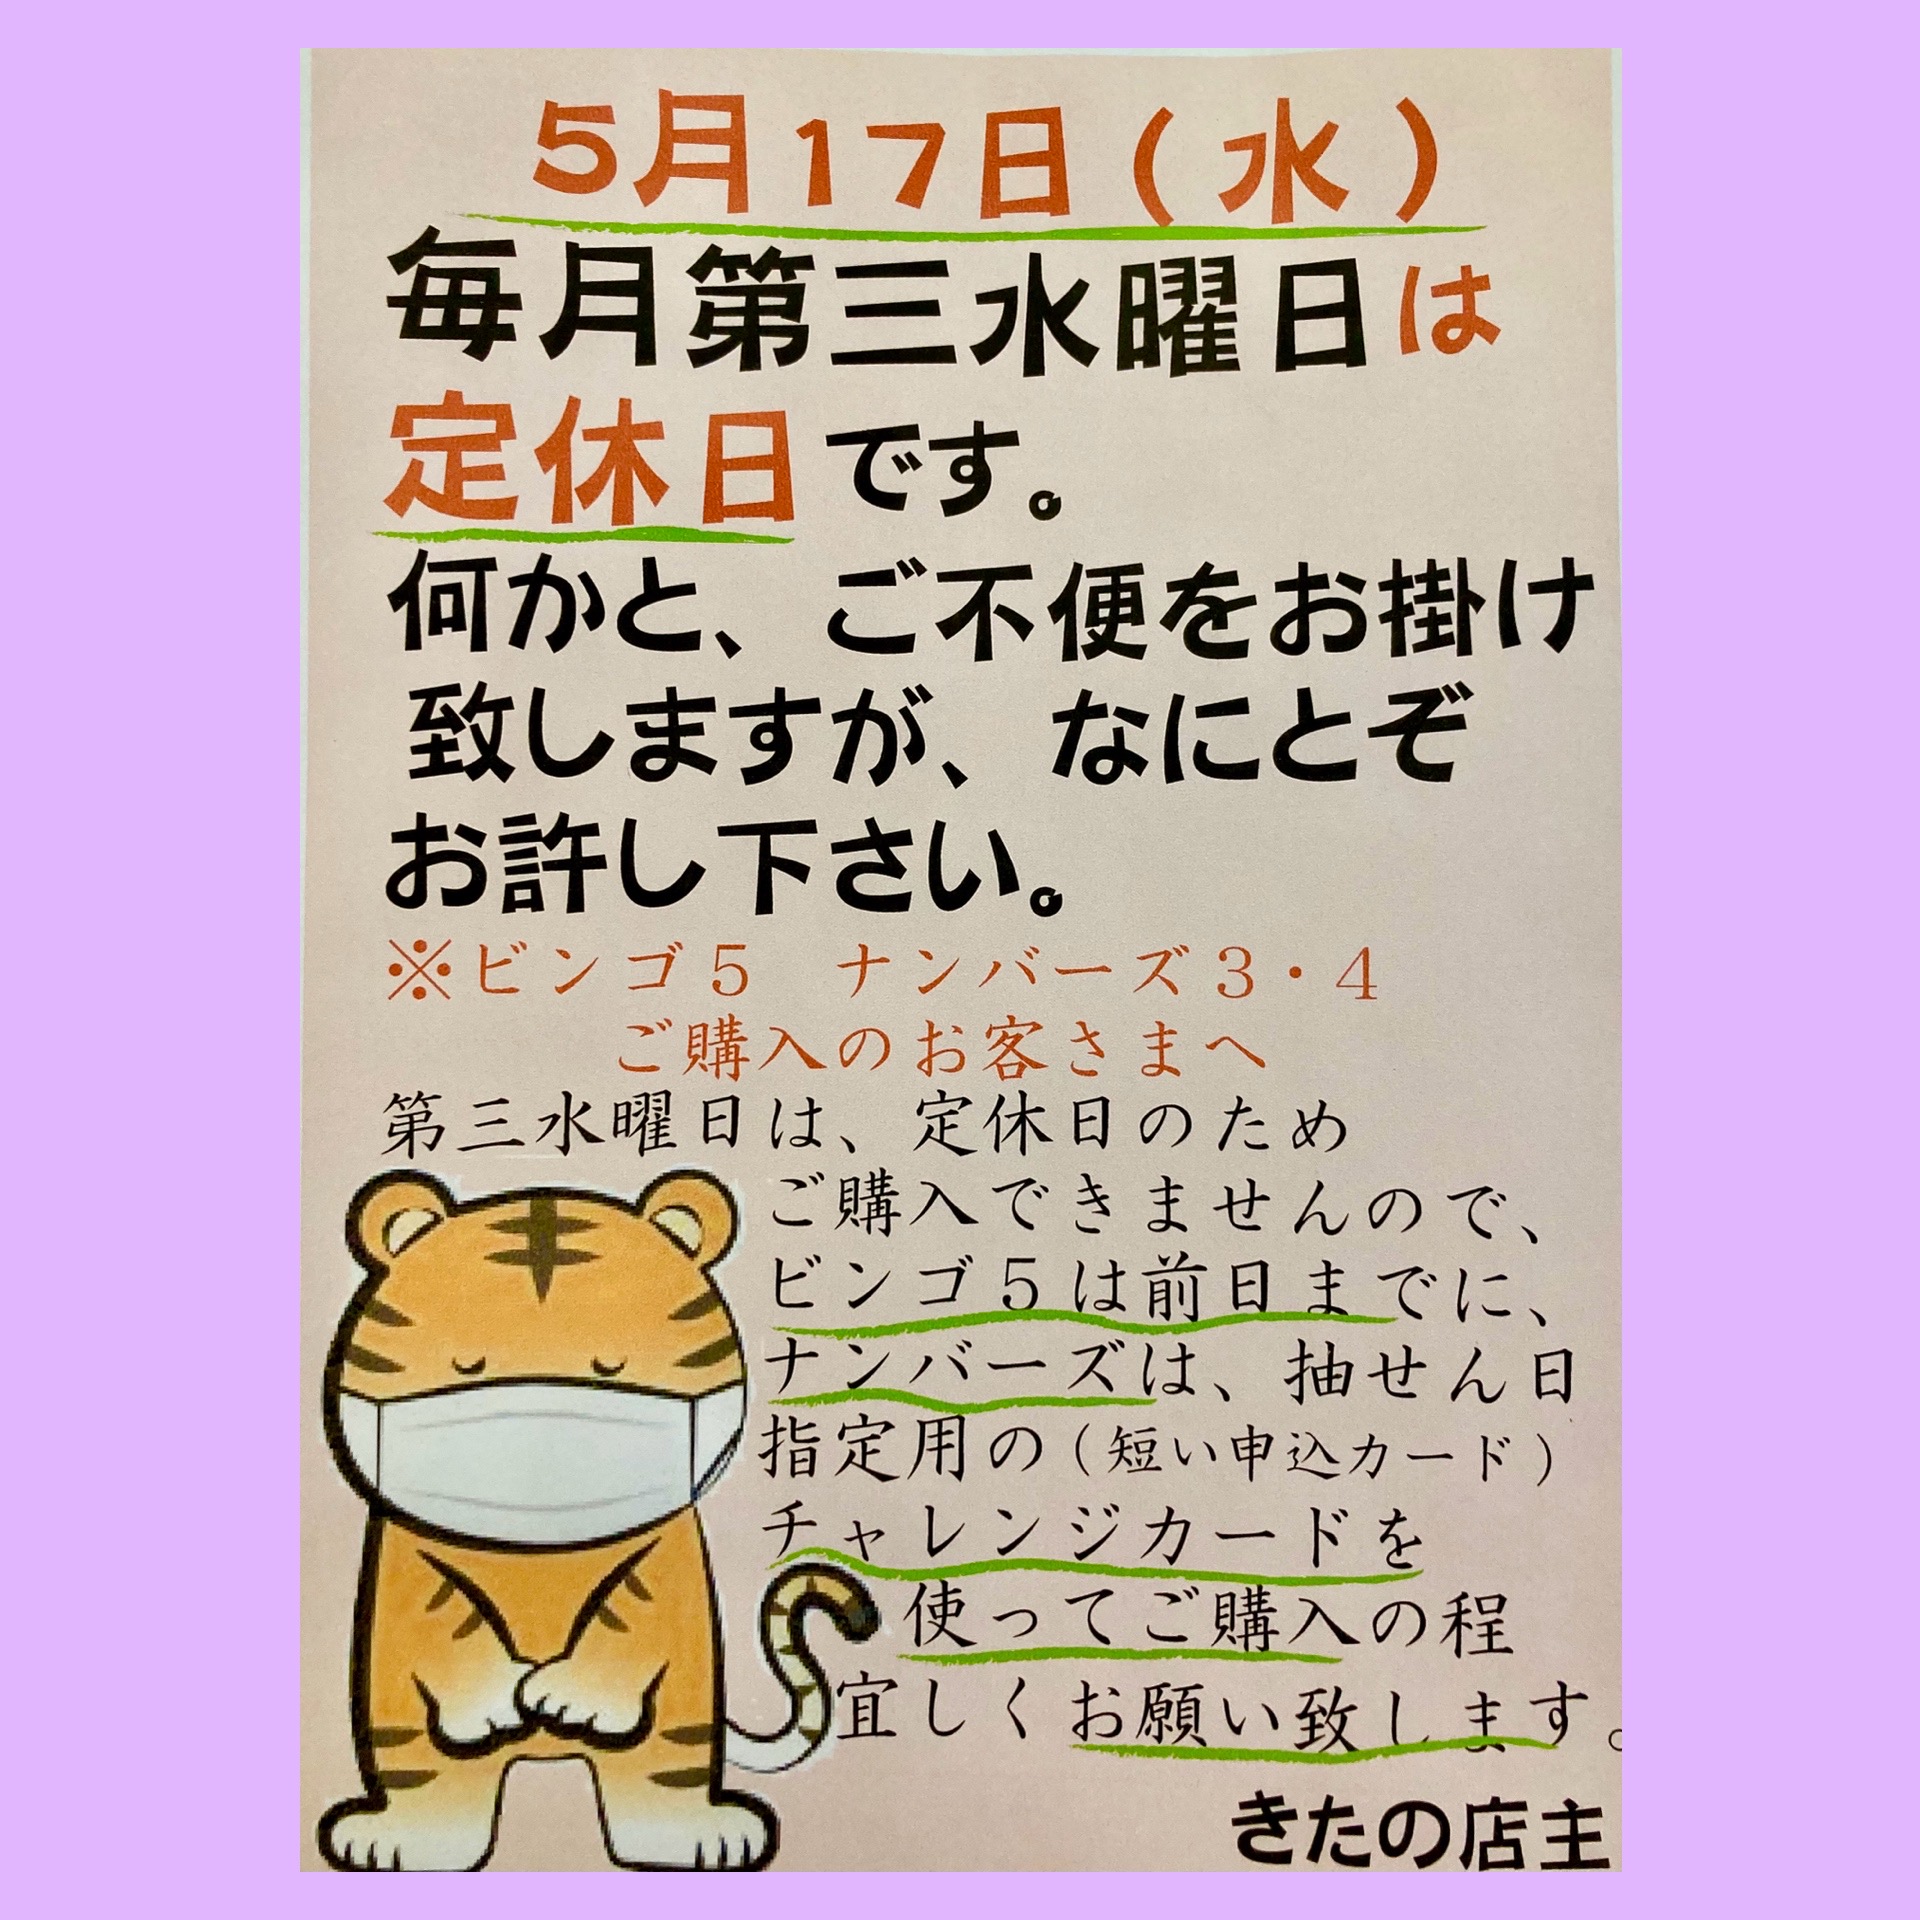 5月17日(水)
毎月第三水曜日は
定休日です。
何かと、ご不便をお掛け
致しますが、なにとぞ
お許し下さい。
※ビンゴ５　ナンバーズ３・４
ご購入のお客さまへ
第三水曜日は、定休日のため
ご購入できませんので、
ビンゴ５は前日までに、
ナンバーズは、抽せん日
指定用の（短い申込カード）
チャレンジカードを
使ってご購入の程
宜しくお願い致します。
きたの店主